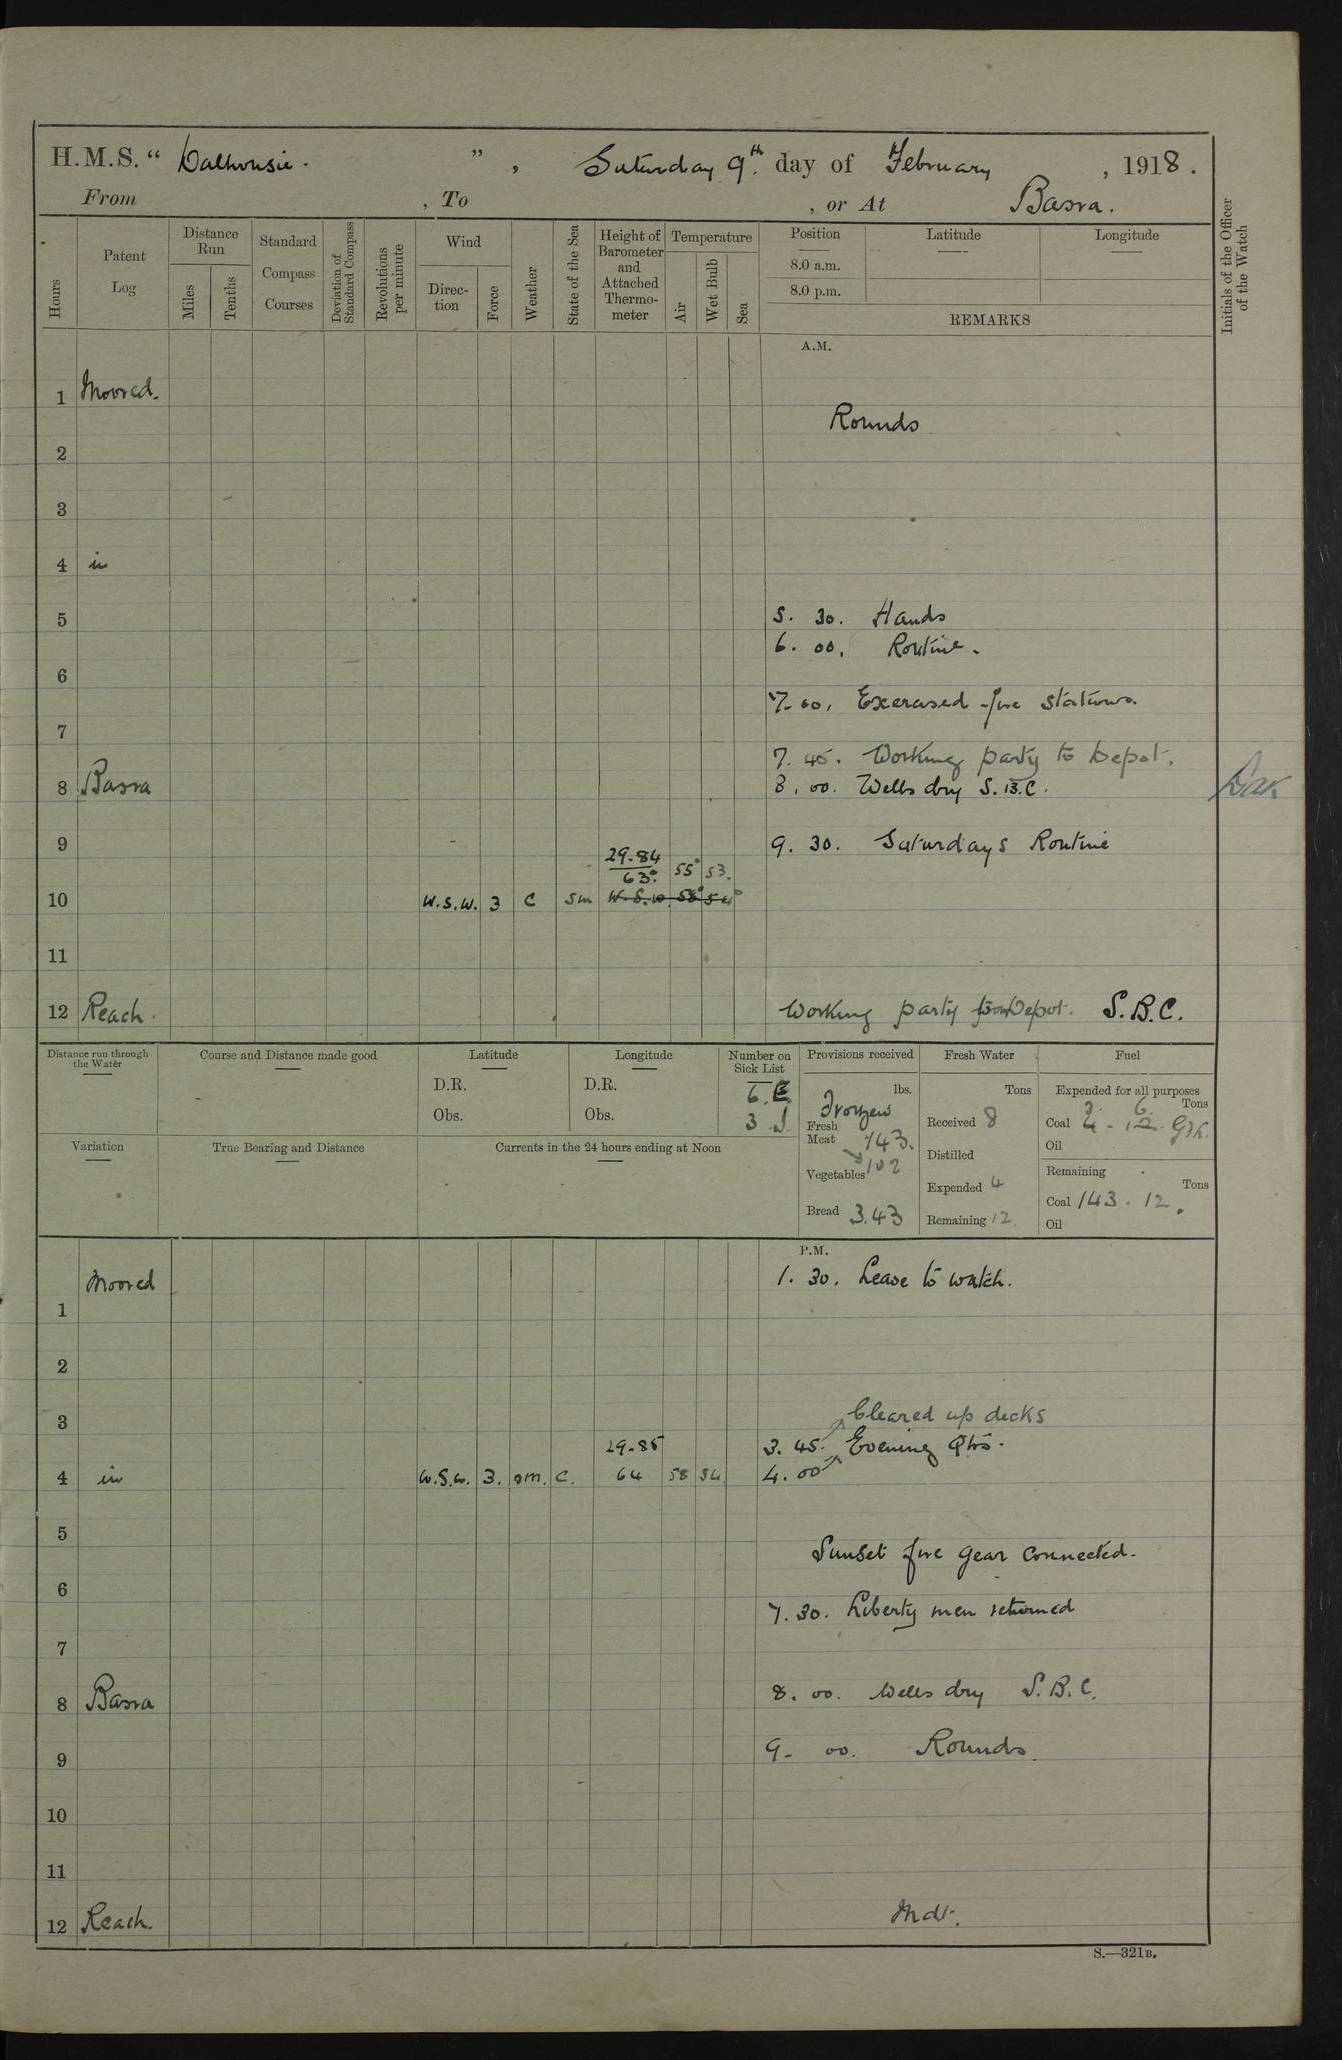 H.M.S. “ Dalhousie. ” , Saturday 9th. day of February , 1918.
From , To , or At Basra.
Hours
Patent Log
Distance Run
Miles
Tenths
Standard Compass Courses
Deviation of Standard Compass
Revolutions per minute
Wind
Direc-tion
Force
Weather
State of the Sea
Height of Barometer and Attached Thermo-meter
Temperature
Air
Wet Bulb
Sea
Position
8.0 a.m.
8.0 p.m.
Latitude
Longitude
REMARKS
Initials of the Officer of the Watch
A.M.
1 Moored.
Rounds
2
3
4 in
5 5. 30. Hands
6. 00. Routine.
6
7. 00. Exercised fire stations.
7
7. 45. Working party to Depot.
8 Basra 8. 00. Wells dry S.B.C.
9 9. 30. Saturdays Routine
29.84
63° 55° 53.
10 W.S.W. 3 C Sm W.S.W. 58° 54°
11
12 Reach. Working party from Depot. S.B.C.
Distance run through the Water
Course and Distance made good
Latitude
D.R.
Obs.
Longitude
D.R.
Obs.
Number on Sick List
6. E.
3 .I
Provisions received
lbs.
Frozen
Fresh Meat 143.
Vegetables 102
Bread 343
Fresh Water
Tons
Received 8
Distilled
Expended 4
Remaining 12
Fuel
Expended for all purposes
Tons
3. 6.
Coal 4. 12.
Oil
Remaining
Tons
Coal 143. 12.
Oil
Variation
True Bearing and Distance
Currents in the 24 hours ending at Noon
P.M.
Moored 1. 30. Leave to watch.
1
2
3 Cleared up decks
29.85 3. 45. Evening Qtrs.
4 in W.S.W. 3. sm. C. 64 58 54 4. 00
5
Sunset fire gear connected.
6
7. 30. Liberty men returned
7
8 Basra 8. 00. Wells dry S.B.C.
9 9. 00. Rounds.
10
11
12 Reach. Mdt.
S.—321B.